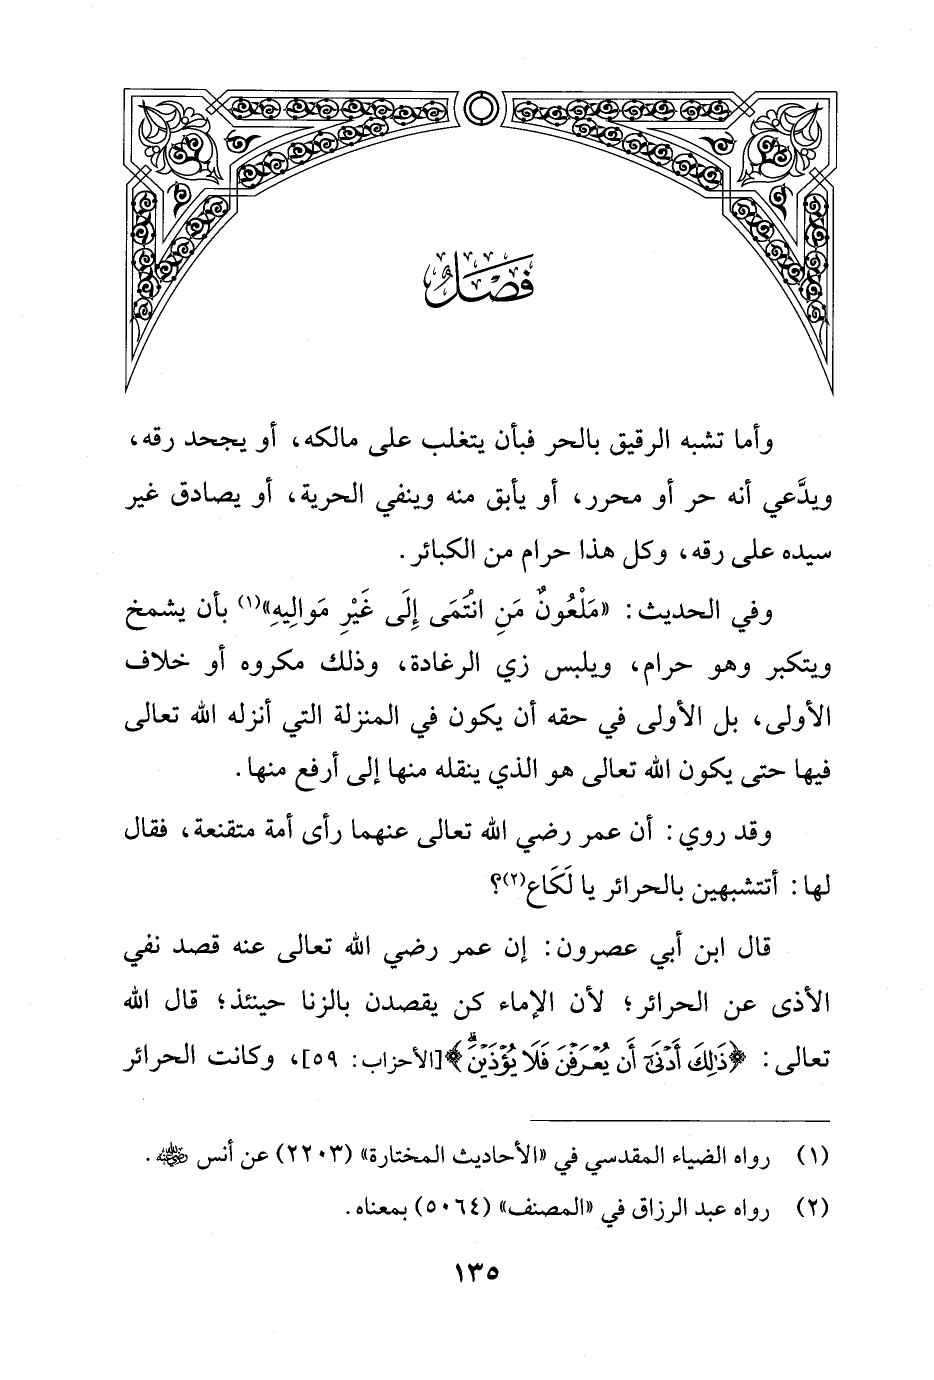 فَصْلٌ
وأما تشبه الرقيق بالحر فبأن يتغلب على مالكه، أو يجحد رقه،
ويدَّعي أنه حر أو محرر، أو يأبق منه وينفي الحرية، أو يصادق غير
سيده على رقه، وكل هذا حرام من الكبائر.
وفي الحديث: «مَلْعُونٌ مَنِ انْتُمَى إِلَى غَيْرِ مَوالِيهِ»(١) بأن يشمخ
ويتكبر وهو حرام، ويلبس زي الرغادة، وذلك مكروه أو خلاف
الأولى، بل الأولى في حقه أن يكون في المنزلة التي أنزله الله تعالى
فيها حتى يكون الله تعالى هو الذي ينقله منها إلى أرفع منها.
وقد روي: أن عمر رضي الله تعالى عنهما رأى أمة متقنعة، فقال
لها: أتتشبهين بالحرائر يا لَكَاع(٢)؟
قال ابن أبي عصرون: إن عمر رضي الله تعالى عنه قصد نفي
الأذى عن الحرائر؛ لأن الإماء كن يقصدن بالزنا حينئذ؛ قال الله
تعالى: ﴿ذَٰلِكَ أَدْنَىٰٓ أَن يُعْرَفْنَ فَلَا يُؤْذَيْنَۗ﴾[الأحزاب: ٥٩]، وكانت الحرائر
(١) رواه الضياء المقدسي في «الأحاديث المختارة» (٢٢٠٣) عن أنس رضي الله عنه.
(٢) رواه عبد الرزاق في «المصنف» (٥٠٦٤) بمعناه.
١٣٥